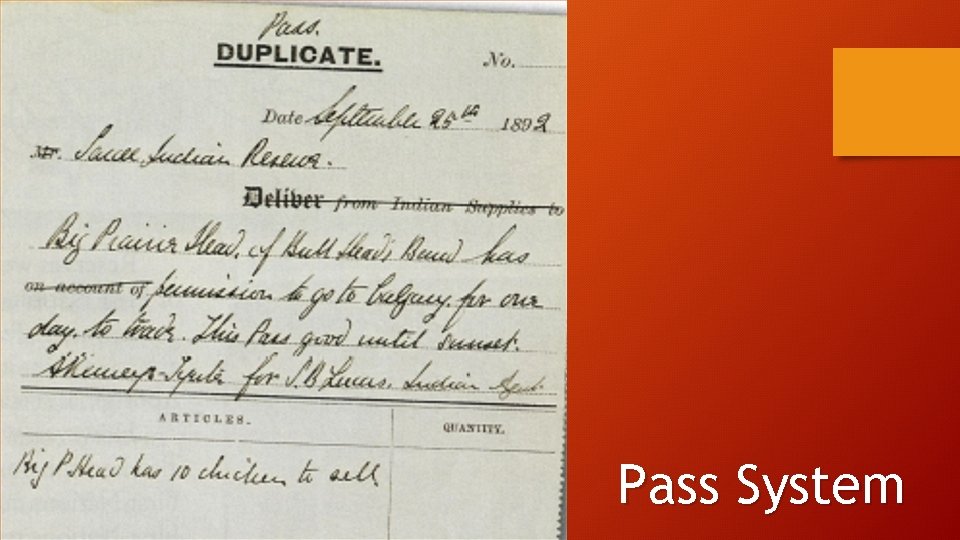 Pass.
DUPLICATE.
No.
Date September 25th 1892
Mr. Sarcee Indian Reserve.
Deliver from Indian Supplies to
Big Prairie Head, of Bull Head's Band has
on account of permission to go to Calgary, for one
day, to trade. This Pass good until sunset.
for S.B Lucas. Indian Agent
ARTICLES. QUANTITY.
Big P Head has 10 chickens to sell
Pass System